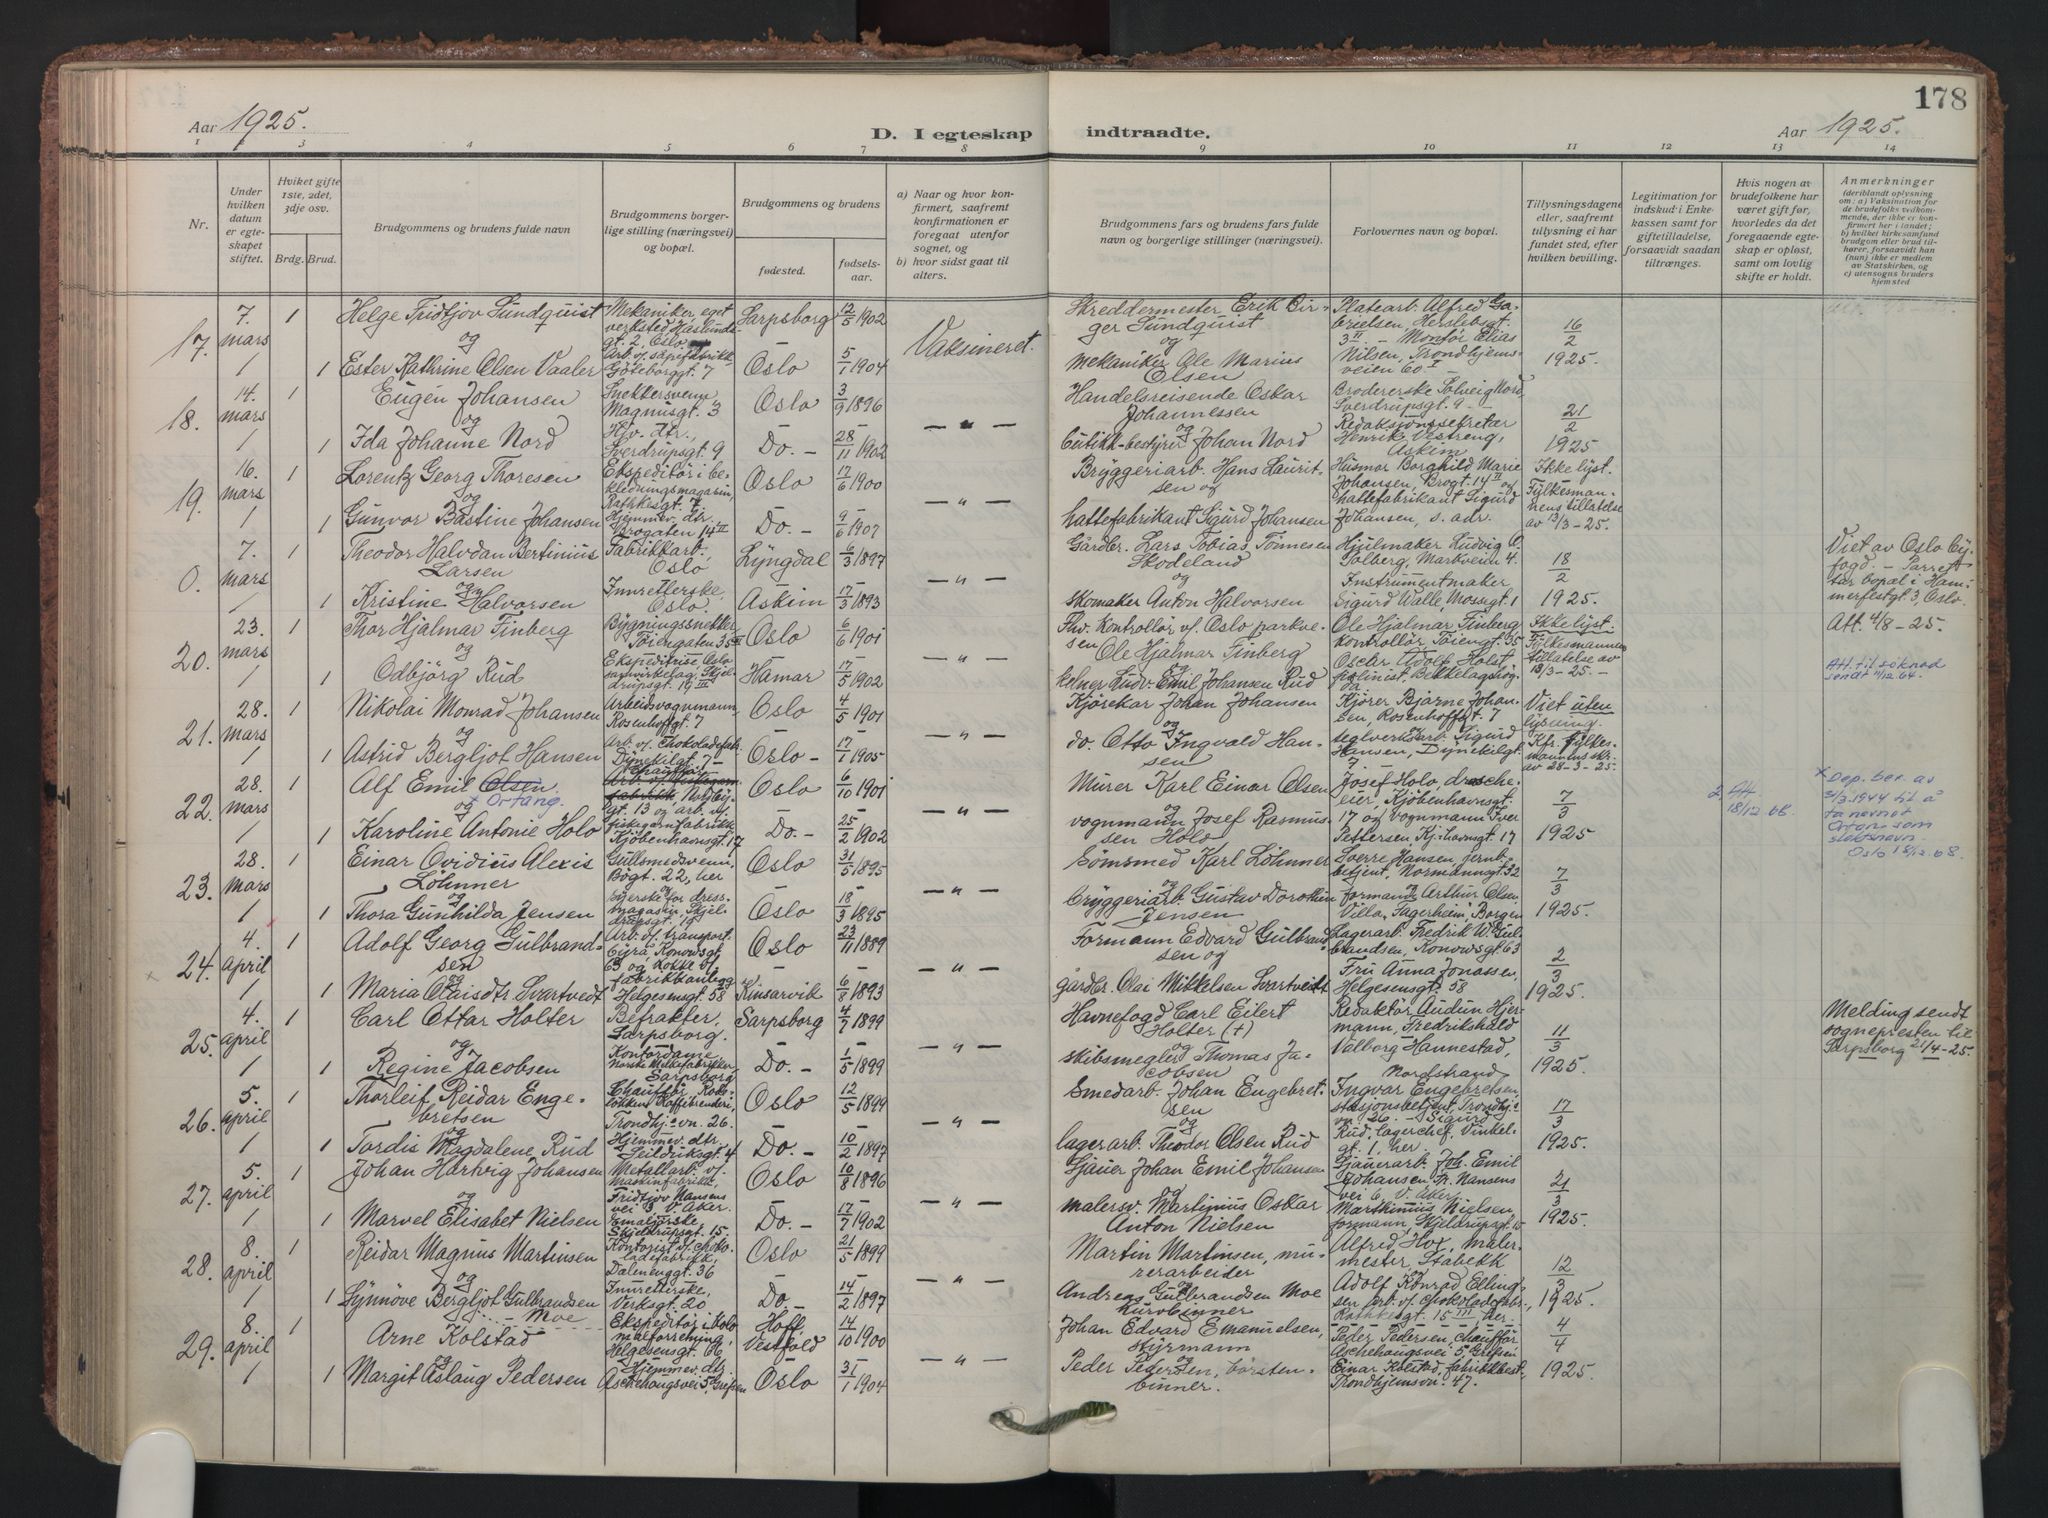 178
Aar 1925.
D. I egteskap indtraadte.
Aar 1925.
1 2 3 4 5 6 7 8 9 10 11 12 13 14
Nr.
Under hvilken datum er egteskapet stiftet.
Hviket gifte 1ste, 2det, 3dje osv.
Brdg. Brud.
Brudgommens og brudens fulde navn
Brudgommens borgerlige stilling (næringsvei) og bopæl.
Brudgommens og brudens
fødested.
fødselsaar.
a) Naar og hvor konfirmert, saafremt konfirmationen er foregaat utenfor sognet, og
b) hvor sidst gaat til alters.
Brudgommens fars og brudens fars fulde navn og borgerlige stillinger (næringsvei).
Forlovernes navn og bopæl.
Tillysningsdagene eller, saafremt tillysning ei har fundet sted, efter hvilken bevilling.
Legitimation for indskud i Enkekassen samt for giftetilladelse, forsaavidt saadan tiltrænges.
Hvis nogen av brudefolkene har været gift før, hvorledes da det foregaaende egteskap er opløst, samt om lovlig skifte er holdt.
Anmerkninger
(deriblandt oplysning om: a) Vaksination for de brudefolks vedkommende, der ikke er konfirmert her i landet; b) hvilket kirkesamfund brudgom eller brud tilhører, forsaavidt han (hun) ikke er medlem av Statskirken, og c) utensogns bruders hjemsted
17. 7. mars 1 Helge Fridtjov Sundquist Mekaniker, eget verksted, Haslunds-gt. 2, Oslo. Sarpsborg 12/5 1902 Vaksineret. Skreddermester Erik Birger Sundquist Platearb. Alfred Gabrielsen, Herslebsgt. 3 II. - Montör Elias 16/2
og
1 1 Ester Kathrine Olsen Vaaler Arb. v/ såpefabrikk Göteborggt. 7 Oslo 5/1 1904 mekaniker Ole Marius Olsen Nilsen, Trondhjemsveien 60 I 1925.
18. 14. mars 1 Eugen Johansen Snekkersvenn Magnusgt. 3 Oslo 3/9 1896 — " — Handelsreisende Oskar Johannessen Brodererske Solveig Nord Sverdrupsgt. 9 - 21/2
og
1 1 Ida Johanne Nord Hjv. dtr., Sverdrupsgt. 9 Do. - 28/11 1902 butikk-bestyrer Johan Nord Redaksjonssekretær Henrik Vestreng, Askim 1925
19. 16. mars 1 Lorentz Georg Thoresen Ekspeditör i bekledningsmagasin, Rathkesgt. 7 Oslo 17/6 1900 — " — Bryggeriarb. Hans Lauritsen og Husmor Borghild Marie Johansen, Brogt. 14 II og Ikke lyst.
og
1 1 Gunvor Bastine Johansen Hjemmev. dtr. Brogaten 14 II Do. - 9/6 1907 hattefabrikant Sigurd Johansen hattefabrikant Sigurd Johansen, s. adr. Fylkesmannens tillatelse av 13/3-25.
0. 7. mars 1 Theodor Halvdan Bertinius Larsen Fabrikkarb. Oslo Lyngdal 6/3 1897 — " — Gårdbr. Lars Tobias Tönnesen Skodeland Hjulmaker Ludvig Solberg, Markveien 4. 18/2 Viet av Oslo byfogd. - Parret har bopæl i Hammerfestgt. 3, Oslo.
og
1 1 Kristine Halvorsen Innretterske, Oslo. Askim 17/3 1893 skomaker Anton Halvorsen Instrumentmaker Sigurd Walle, Mossegt. 1 1925. Att. 4/8-25.
20. 23. mars 1 Thor Hjalmar Finberg Bygningssnekker Töiengaten 35 II Oslo 6/6 1901 — " — Fhv. Kontrollör v/ Oslo parkvesen Ole Hjalmar Finberg Ole Hjalmar Finberg kontrollör Töiengt. 35 Ikke lyst.
og
1 1 Odbjörg Rud Ekspeditrise, Oslo Hamar 17/5 1902 kelner Ludv. Emil Johansen Rud Oscar Adolf Holst Fylkesmannens tillatelse av 13/3-25. - Att. til söknad sendt 11/12.64.
21. 28. mars 1 Nikolai Monrad Johansen Arbeidsvognmann, Rosenhoffgt. 7 Oslo 4/5 1901 — " — Kjörekar Johan Johansen Kjörer Bjarne Johansen, Rosenhoffgt 7 Viet uten lysning.
og
1 1 Astrid Bergljot Hansen Arb. v/ Chokoladefab. Dynekilgt. 7 - Oslo - 17/1 1905 do. Otto Ingvald Hansen teglverksarb. Sigurd Hansen, Dynekilgt. 7. - Kfr. fylkesmannens skr. av 28-3-25.
22. 28. mars 1 Alf Emil Olsen x Ortang. Chaufför Oslo 6/10 1901 — " — Murer Karl Einar Olsen Josef Holo, droscheeier, Kjöbenhavnsgt. 17 og 7/3 2 Att. 18/12.66. x Dep. bev. av 3/3.1944 til å ta navnet Ortang som slektsnavn. Oslo 18/12.68.
og
1 1 Karoline Antonie Holo Kjöbenhavnsgt. 17 Do. - 25/2 1902 vognmann Josef Rasmussen Holo Vognmann Iver Pettersen, Kj:havnsgt. 17 1925
23. 28. mars 1 Einar Ovidius Alexis Löhnner Gullsmedsvenn, Bögt. 22, her Oslo 31/5 1895 — " — Sömsmed Karl Löhnner Sverre Hansen, jernb.betjent, Normannsgt. 32 7/3
og
1 1 Thora Gunhilda Jensen Syerske for dressmagasin, Skjeldrupsgt. Oslo 18/3 1895 bryggeriarb. Gustav Dorothin Jensen formann Arthur Olsen, Villa, Fagerheim, Borgen 1925.
24. 4. april 1 Adolf Georg Gulbrandsen Arb. v/ transportbyrå, Konowsgt 63 og kokke v/ Oslo 23/11 1889 — " — Formann Edvard Gulbrandsen og Lagerarb. Fredrik W. Gulbrandsen, Konowsgt. 63 2/3
og
1 1 Maria Olaisdtr Svartvedt Helgesensgt. 58 Kinsarvik 6/8 1893 gårdbr. Olai Mikkelsen Svartveidt Fru Anna Jonassen, Helgesensgt. 58 1925.
25. 4. april 1 Carl Ottar Holter Befrakter, Sarpsborg. Sarpsborg 4/7 1899 — " — Havnefogd Carl Eilert Holter (+) Redaktör Audun Hjermann, Fredrikshald 11/3 Melding sendt sognepresten til Sarpsborg 21/4-25.
og
1 1 Regine Jacobsen Kontordame Sarpsborg Do. - 1/5 1899 skibsmegler Thomas Jacobsen Valborg Hannestad, Nordstrand 1925.
26. 5. april 1 Thorleif Reidar Engebretsen Chaufför Trondhj:vn. 26. Oslo 12/5 1899 — " — Smedarb. Johan Engebretsen Ingvar Engebretsen, stasjonsbetjent, Trondhj:vn. 26. - Sigurd 17/3
og
1 1 Tordis Magdalene Rud Hjemmev. dtr. Seilduksgt. 4 Do. - 10/2 1897 lagerarb. Theodor Olsen Rud Rud, lagerchef, Vinkelgt. 1, her. 1925.
27. 5. april 1 Johan Hartvig Johansen Metallarb. v/ Maskinfabrikk, Fridtjov Nansens vei 3 V. Aker. Oslo 10/8 1896 — " — Gjauer Johan Emil Johansen Gjauerarb. Joh. Emil Johansen, Fr. Nansens vei 6, V. Aker. 21/3
og
1 1 Marvel Elisabet Nielsen Emaljörske Skjeldrupsgt. 15. Do. - 17/7 1902 malersv. Martinius Oskar Anton Nielsen Marthinius Nielsen formann, Skjeldrupsgt. 15 1925.
28. 8. april 1 Reidar Magnus Martinsen Kontorist v/ chokoladefabrikk, Dalenenggt. 36 Oslo 21/5 1899 — " — Martin Martinsen, murerarbeider Alfred Hox, malermester, Stabekk 12/3
og
1 1 Synnöve Bergljot Gulbrandsen Moe Innretterske, Verksgt. 20 Do. - 14/2 1897 Andreas Gulbrandsen Moe kurvbinner Adolf Konrad Ellingsen arb. v/ chokoladefabr., Rathkesgt. 15 III, her. 1925.
29. 8. april 1 Arne Kolstad Ekspeditör i kolonialforretning, Helgesensgt. 66 Hoff, Vestfold 14/10 1900 — " — Johan Edvard Emanuelsen, styrmann Peder Pedersen, Chaufför Aschehougsvei 5, Grefsen 4/4
og
1 1 Margit Aslaug Pedersen Hjemmev. dtr. Aschehougsvei 5, Grefsen Oslo 31/1 1904 Peder Pedersen, börstenbinner. Einar Kolstad, Trondhjemsvn. 47. 1925.